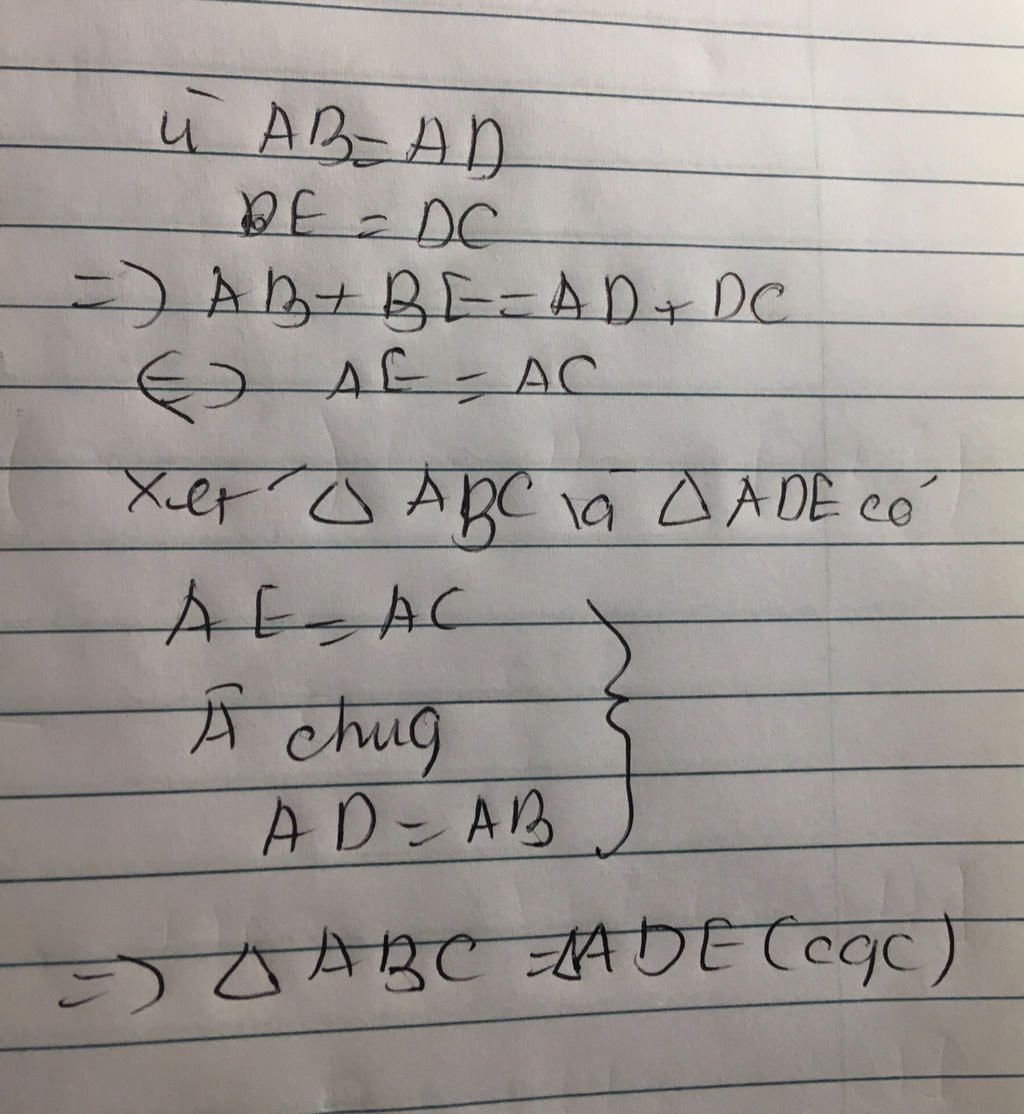 vì AB = AD
BE = DC
=> AB + BE = AD + DC
<=> AE = AC
Xét △ ABC và △ ADE có
AE = AC
Â chug
AD = AB
=> △ ABC = △ADE (cgc)